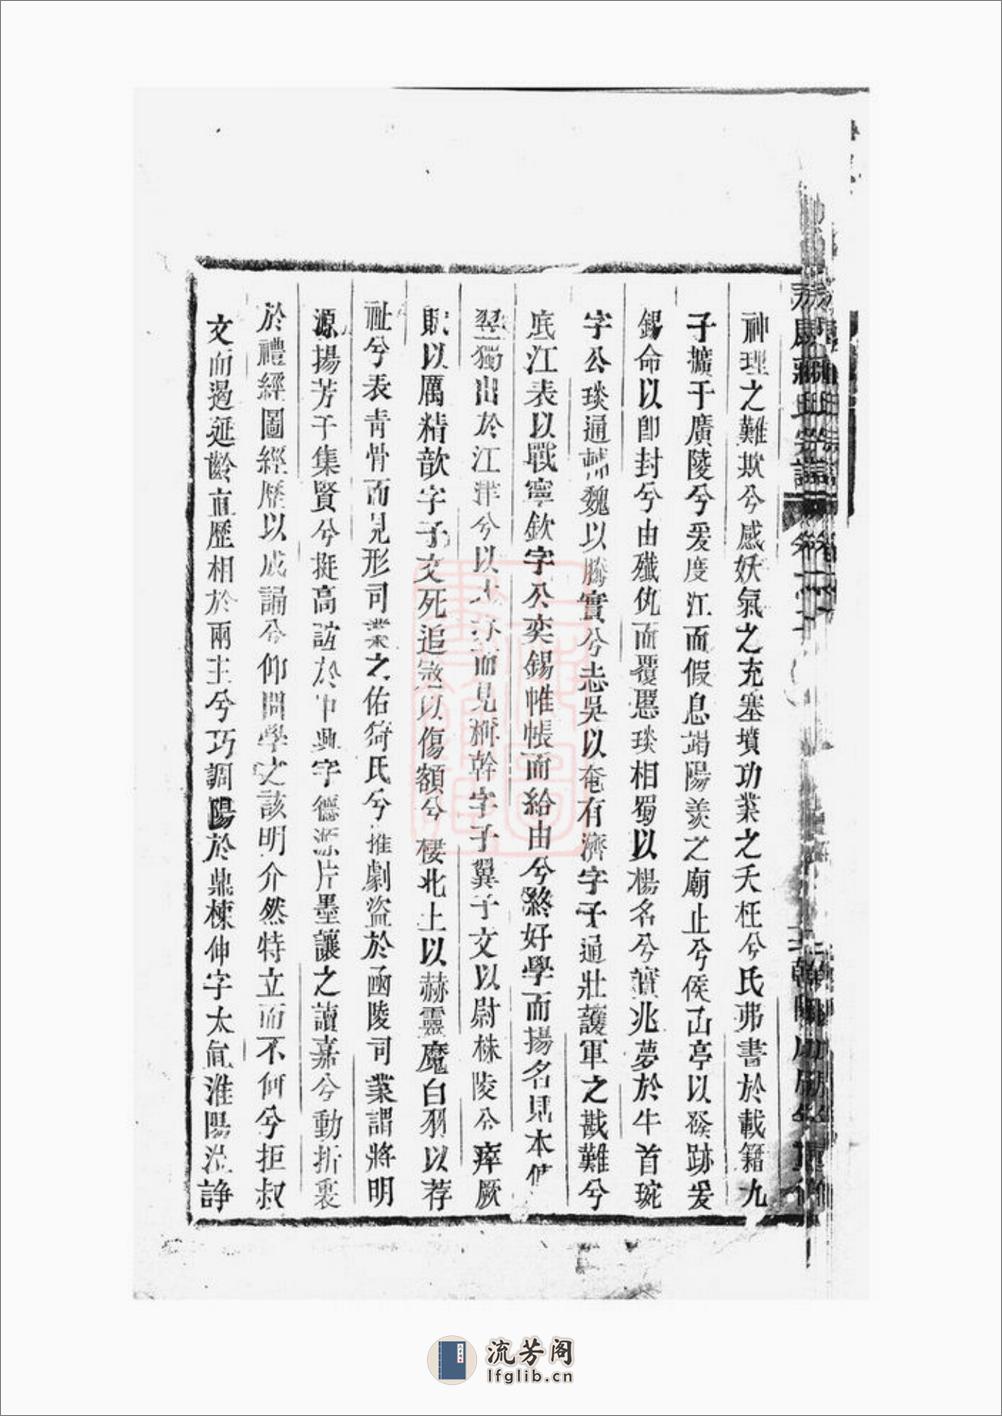 神理之難欺兮感妖氣之充塞墳功業之夭枉兮氏弗書於載籍九
子擴于廣陵兮爰度江而假息竭陽羨之廟止兮侯山亭以發跡爰
錫命以卽封兮由殲仇而覆慝琰相蜀以楊名兮寶兆夢於牛首琬
字公琰通輔魏以騰實兮志吳以奄有濟字子通壯護軍之戡難兮
底江表以戰寧欽字公奕錫帷帳而給由兮終好學而揚名見本
翌獨出於江津兮以而見稱幹字子翼子文以尉秣陵兮瘁厥
賦以厲精歆字子文死追盜以傷額兮樓北上以赫靈魔白羽以荐
祉兮表青骨而見形司業之佑猗氏兮推劇盜於函陵司業謂將明
源揚芳于集賢兮挺高誼於中興字德源片墨讓之讀嘉兮動折裏
於禮經圖經歷以成誦兮仰問學之該明介然特立而不何兮拒叔
文而遏延齡直歷相於兩主兮巧調陽於鼎棟伸字大氣淮陽泣諍
流芳阁
lfglib.cn